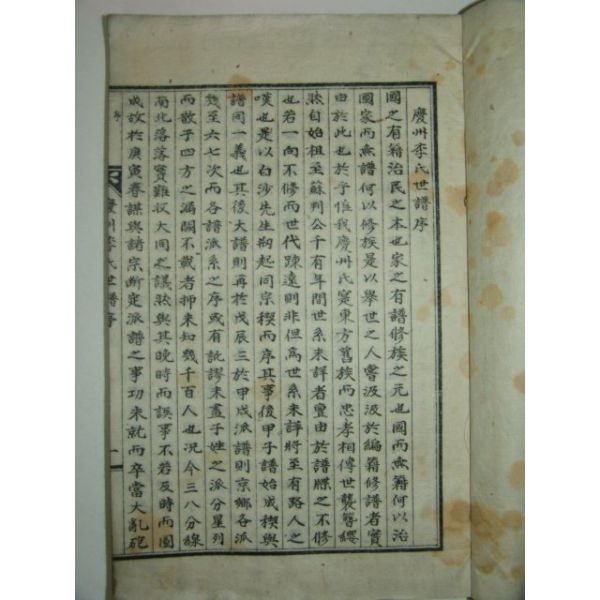 慶州李氏世譜序
國之有籍治民之本也家之有譜修族之元也國而無籍何以治
國家而無譜何以修族是以舉世之人嘗汲汲於編籍修譜者實
由於此也於乎惟我慶州氏寔東方舊族而忠孝相傳世襲簪纓
然自始祖至蘇判公千有年間世系未詳者亶由於譜牒之不修
也若一向不修而世代踈遠則非但爲世系未詳將至有路人之
嘆也是以白沙先生刱起同宗稧而序其事後甲子譜始成稧與
譜同一義也其後大譜則再於戊辰三於甲戌派譜則京鄉各派
幾至六七次而各譜派系之序或有訛謬未盡子姓之派分星列
而散乎四方之漏闕不載者抑未知幾千百人也况今三八分線
南北落落實難叙大同之議然與其晚時而誤事不若及時而圖
成故於庚寅春謀與諸宗斷定派譜之事功未就而卒當大亂砲
序
慶州李氏世譜序
一